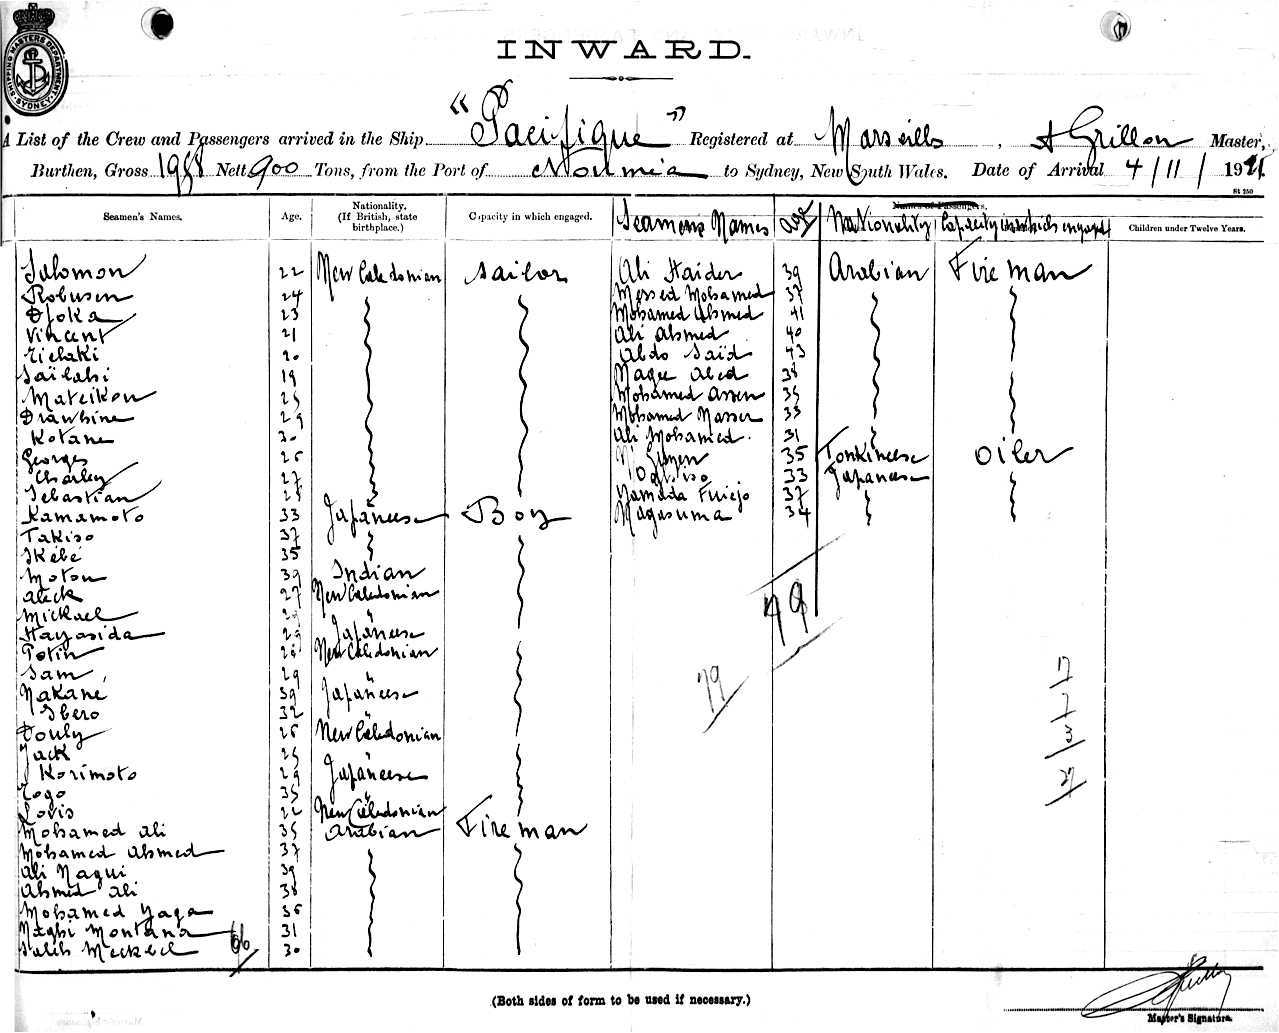 SHIPPING MASTERS DEPARTMENT SYDNEY
INWARD.
A List of the Crew and Passengers arrived in the Ship "Pacifique" Registered at Marseille, A Grillon Master,
Burthen, Gross Nett 900 Tons, from the Port of Noumia to Sydney, New South Wales. Date of Arrival 4/11/19
St 250
Seamen's Names. Age. Nationality. (If British, state birthplace.) Capacity in which engaged. Seamens Names Age Names of Passengers. Nationality Capacity in which engaged Children under Twelve Years.
Salomon 22 New Caledonian Sailor Ali Haider 39 Arabian Fireman
Robusen 24 Messed Mohamed 37
Djoka 23 Mohamed Ahmed 41
Vincent 21 Ali Ahmed 40
Zielaki 20 Abdo Saïd 43
19 Abed 38
Mateikon 25 Mohamed Assen 35
Drawhine 29 Mohamed Nasser 33
Kotane 30 Ali Mohamed 31
Georges 26 35 Tonkineese Oiler
Charley 27 33 Japaneese
Sebastian 25 Yamada 37
Kamamoto 33 Japaneese Boy Nagasuma 34
Takiso 37
Ikébé 35
Motou 39 Indian
Aleck 27 New Caledonian
Mickael 29 "
Hayasida 29 Japaneese
Potin 28 New Caledonian
Sam 29 "
Nakane 39 Japaneese
Ibero 32 "
Douly 26 New Caledonian
Jack 25 "
Korimoto 29 Japaneese
Togo 35 "
Lovis 22 New Caledonian
Mohamed Ali 35 Arabian Fireman
Mohamed Ahmed 37
Ali Nagui 39
Ahmed Ali 38
Mohamed Yaga 36
Nagbi Montana 31
Saleh 30
66
79
79
17
7
3
27
(Both sides of form to be used if necessary.)
Master's Signature.